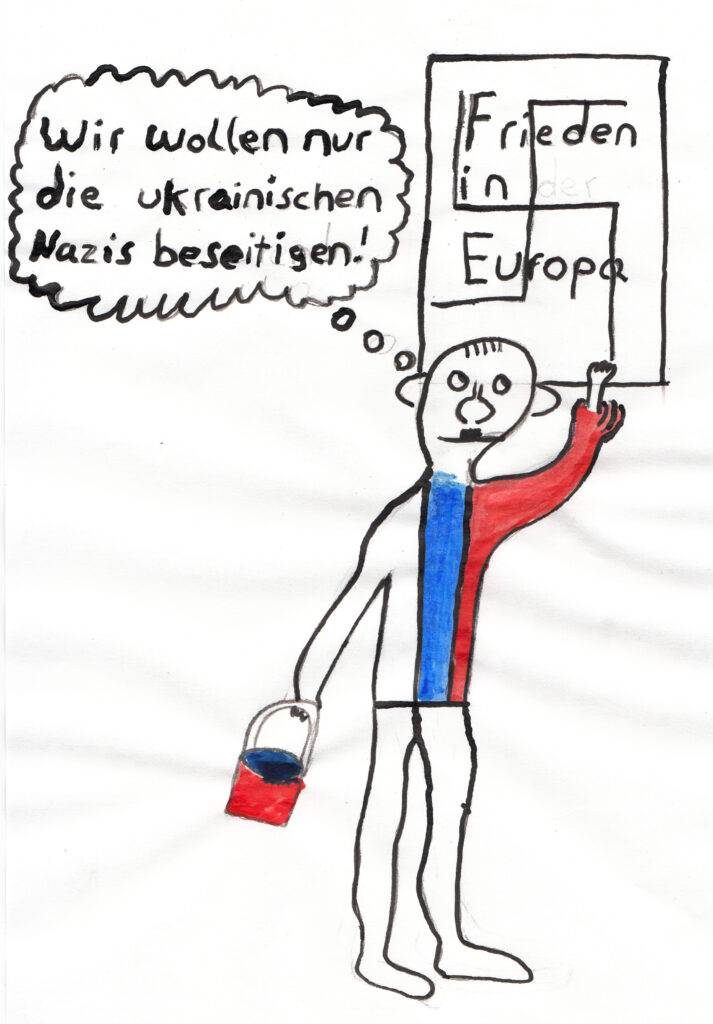 Wir wollen nur
die ukrainischen
Nazis beseitigen!
Frieden
in der
Europa